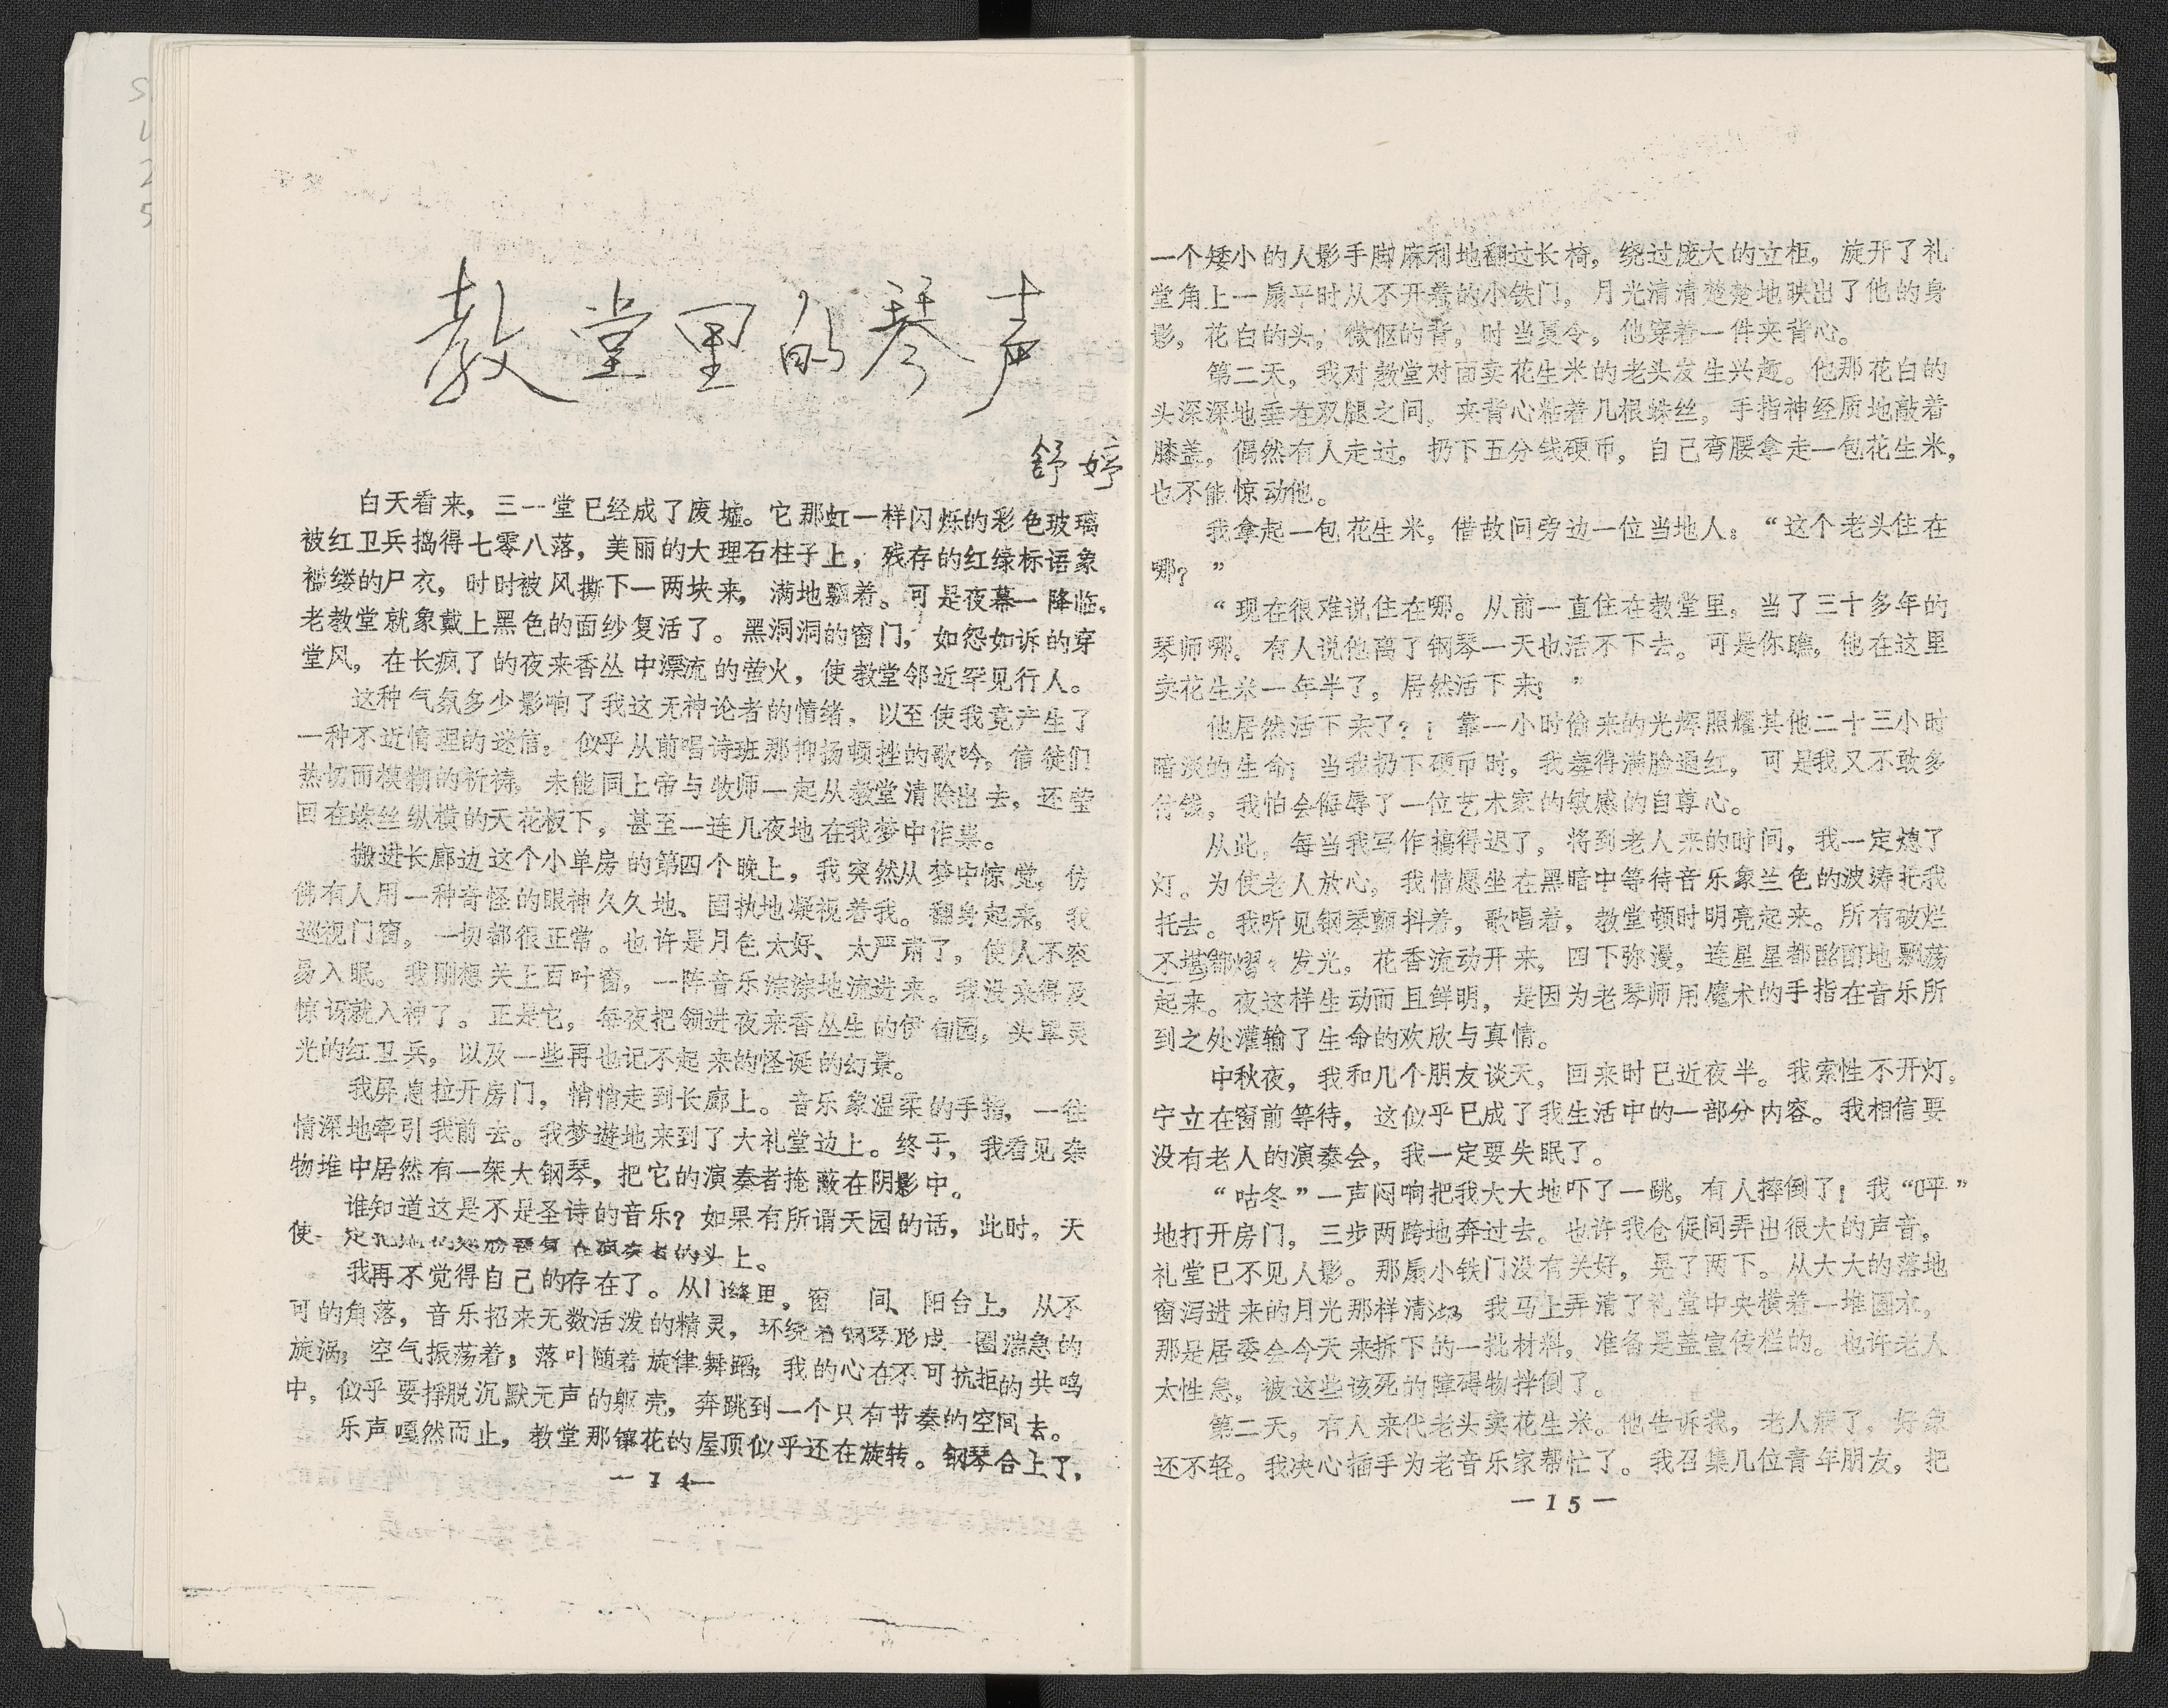 教堂里的琴声
舒婷
白天看来，三一堂已经成了废墟。它那虹一样闪烁的彩色玻璃
被红卫兵捣得七零八落，美丽的大理石柱子上，残存的红绿标语象
褴缕的尸衣，时时被风撕下一两块来，满地飘着。可是夜幕一降临，
老教堂就象戴上黑色的面纱复活了。黑洞洞的窗门，如怨如诉的穿
堂风，在长疯了的夜来香丛中漂流的萤火，使教堂邻近罕见行人。
这种气氛多少影响了我这无神论者的情绪，以至使我竟产生了
一种不近情理的迷信：似乎从前唱诗班那抑扬顿挫的歌吟，信徒们
热切而模糊的祈祷，未能同上帝与牧师一起从教堂清除出去，还莹
回在蛛丝纵横的天花板下，甚至一连几夜地在我梦中作祟。
搬进长廊边这个小单房的第四个晚上，我突然从梦中惊觉，仿
佛有人用一种奇怪的眼神久久地、固执地凝视着我。翻身起来，我
巡视门窗，一切都很正常。也许是月色太好、太严肃了，使人不容
易入眠。我刚想关上百叶窗，一阵音乐淙淙地流进来。我没来得及
惊讶就入神了。正是它，每夜把领进夜来香丛生的伊甸园，头罩灵
光的红卫兵，以及一些再也记不起来的怪诞的幻景。
我屏息拉开房门，悄悄走到长廊上。音乐象温柔的手指，一往
情深地牵引我前去。我梦遊地来到了大礼堂边上。终于，我看见杂
物堆中居然有一架大钢琴，把它的演奏者掩蔽在阴影中。
谁知道这是不是圣诗的音乐？如果有所谓天园的话，此时，天
使一定把她的翅膀覆复在演奏者的头上。
我再不觉得自己的存在了。从门缝里，窗 间、阳台上，从不
可的角落，音乐招来无数活泼的精灵，环绕着钢琴形成一圈湍急的
旋涡；空气振荡着；落叶随着旋律舞蹈；我的心在不可抗拒的共鸣
中，似乎要挣脱沉默无声的躯壳，奔跳到一个只有节奏的空间去。
乐声嘎然而止，教堂那镶花的屋顶似乎还在旋转。钢琴合上了，
—14—
一个矮小的人影手脚麻利地翻过长椅，绕过庞大的立柜，旋开了礼
堂角上一扇平时从不开着的小铁门，月光清清楚楚地映出了他的身
影，花白的头；微伛的背；时当夏令，他穿着一件夹背心。
第二天，我对教堂对面卖花生米的老头发生兴趣。他那花白的
头深深地垂在双腿之间，夹背心粘着几根蛛丝，手指神经质地敲着
膝盖，偶然有人走过，扔下五分钱硬币，自己弯腰拿走一包花生米，
也不能惊动他。
我拿起一包花生米，借故问旁边一位当地人：“这个老头住在
哪？”
“现在很难说住在哪。从前一直住在教堂里，当了三十多年的
琴师哪。有人说他离了钢琴一天也活不下去。可是你瞧，他在这里
卖花生米一年半了，居然活下来！”
他居然活下来了？！靠一小时偷来的光辉照耀其他二十三小时
暗淡的生命；当我扔下硬币时，我羞得满脸通红，可是我又不敢多
付钱，我怕会侮辱了一位艺术家的敏感的自尊心。
从此，每当我写作搞得迟了，将到老人来的时间，我一定熄了
灯。为使老人放心，我情愿坐在黑暗中等待音乐象兰色的波涛托我
托去。我听见钢琴颤抖着，歌唱着，教堂顿时明亮起来。所有破烂
不堪都熠熠发光，花香流动开来，四下弥漫，连星星都酩酊地飘荡
起来。夜这样生动而且鲜明，是因为老琴师用魔术的手指在音乐所
到之处灌输了生命的欢欣与真情。
中秋夜，我和几个朋友谈天，回来时已近夜半。我索性不开灯，
宁立在窗前等待，这似乎已成了我生活中的一部分内容。我相信要
没有老人的演奏会，我一定要失眠了。
“咕冬”一声闷响把我大大地吓了一跳，有人摔倒了！我“呯”
地打开房门，三步两跨地奔过去。也许我仓促间弄出很大的声音，
礼堂已不见人影。那扇小铁门没有关好，晃了两下。从大大的落地
窗泻进来的月光那样清冽，我马上弄清了礼堂中央横着一堆圆木，
那是居委会今天来拆下的一批材料，准备是盖宣传栏的。也许老人
太性急，被这些该死的障碍物拌倒了。
第二天，有人来代老头卖花生米。他告诉我，老人病了，好象
还不轻。我决心插手为老音乐家帮忙了。我召集几位青年朋友，把
—15—